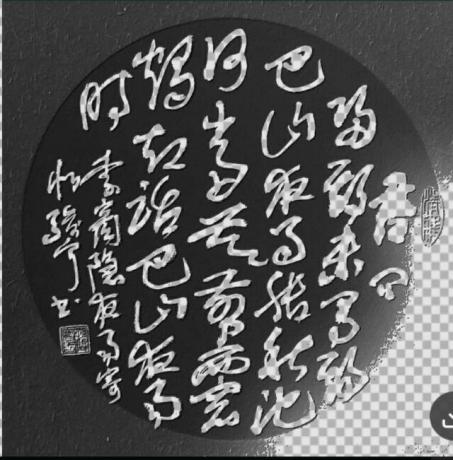 君问
歸期未有期
巴山夜雨漲秋池
何當共剪西窗
燭却話巴山夜雨
時
李商隱夜雨寄
書